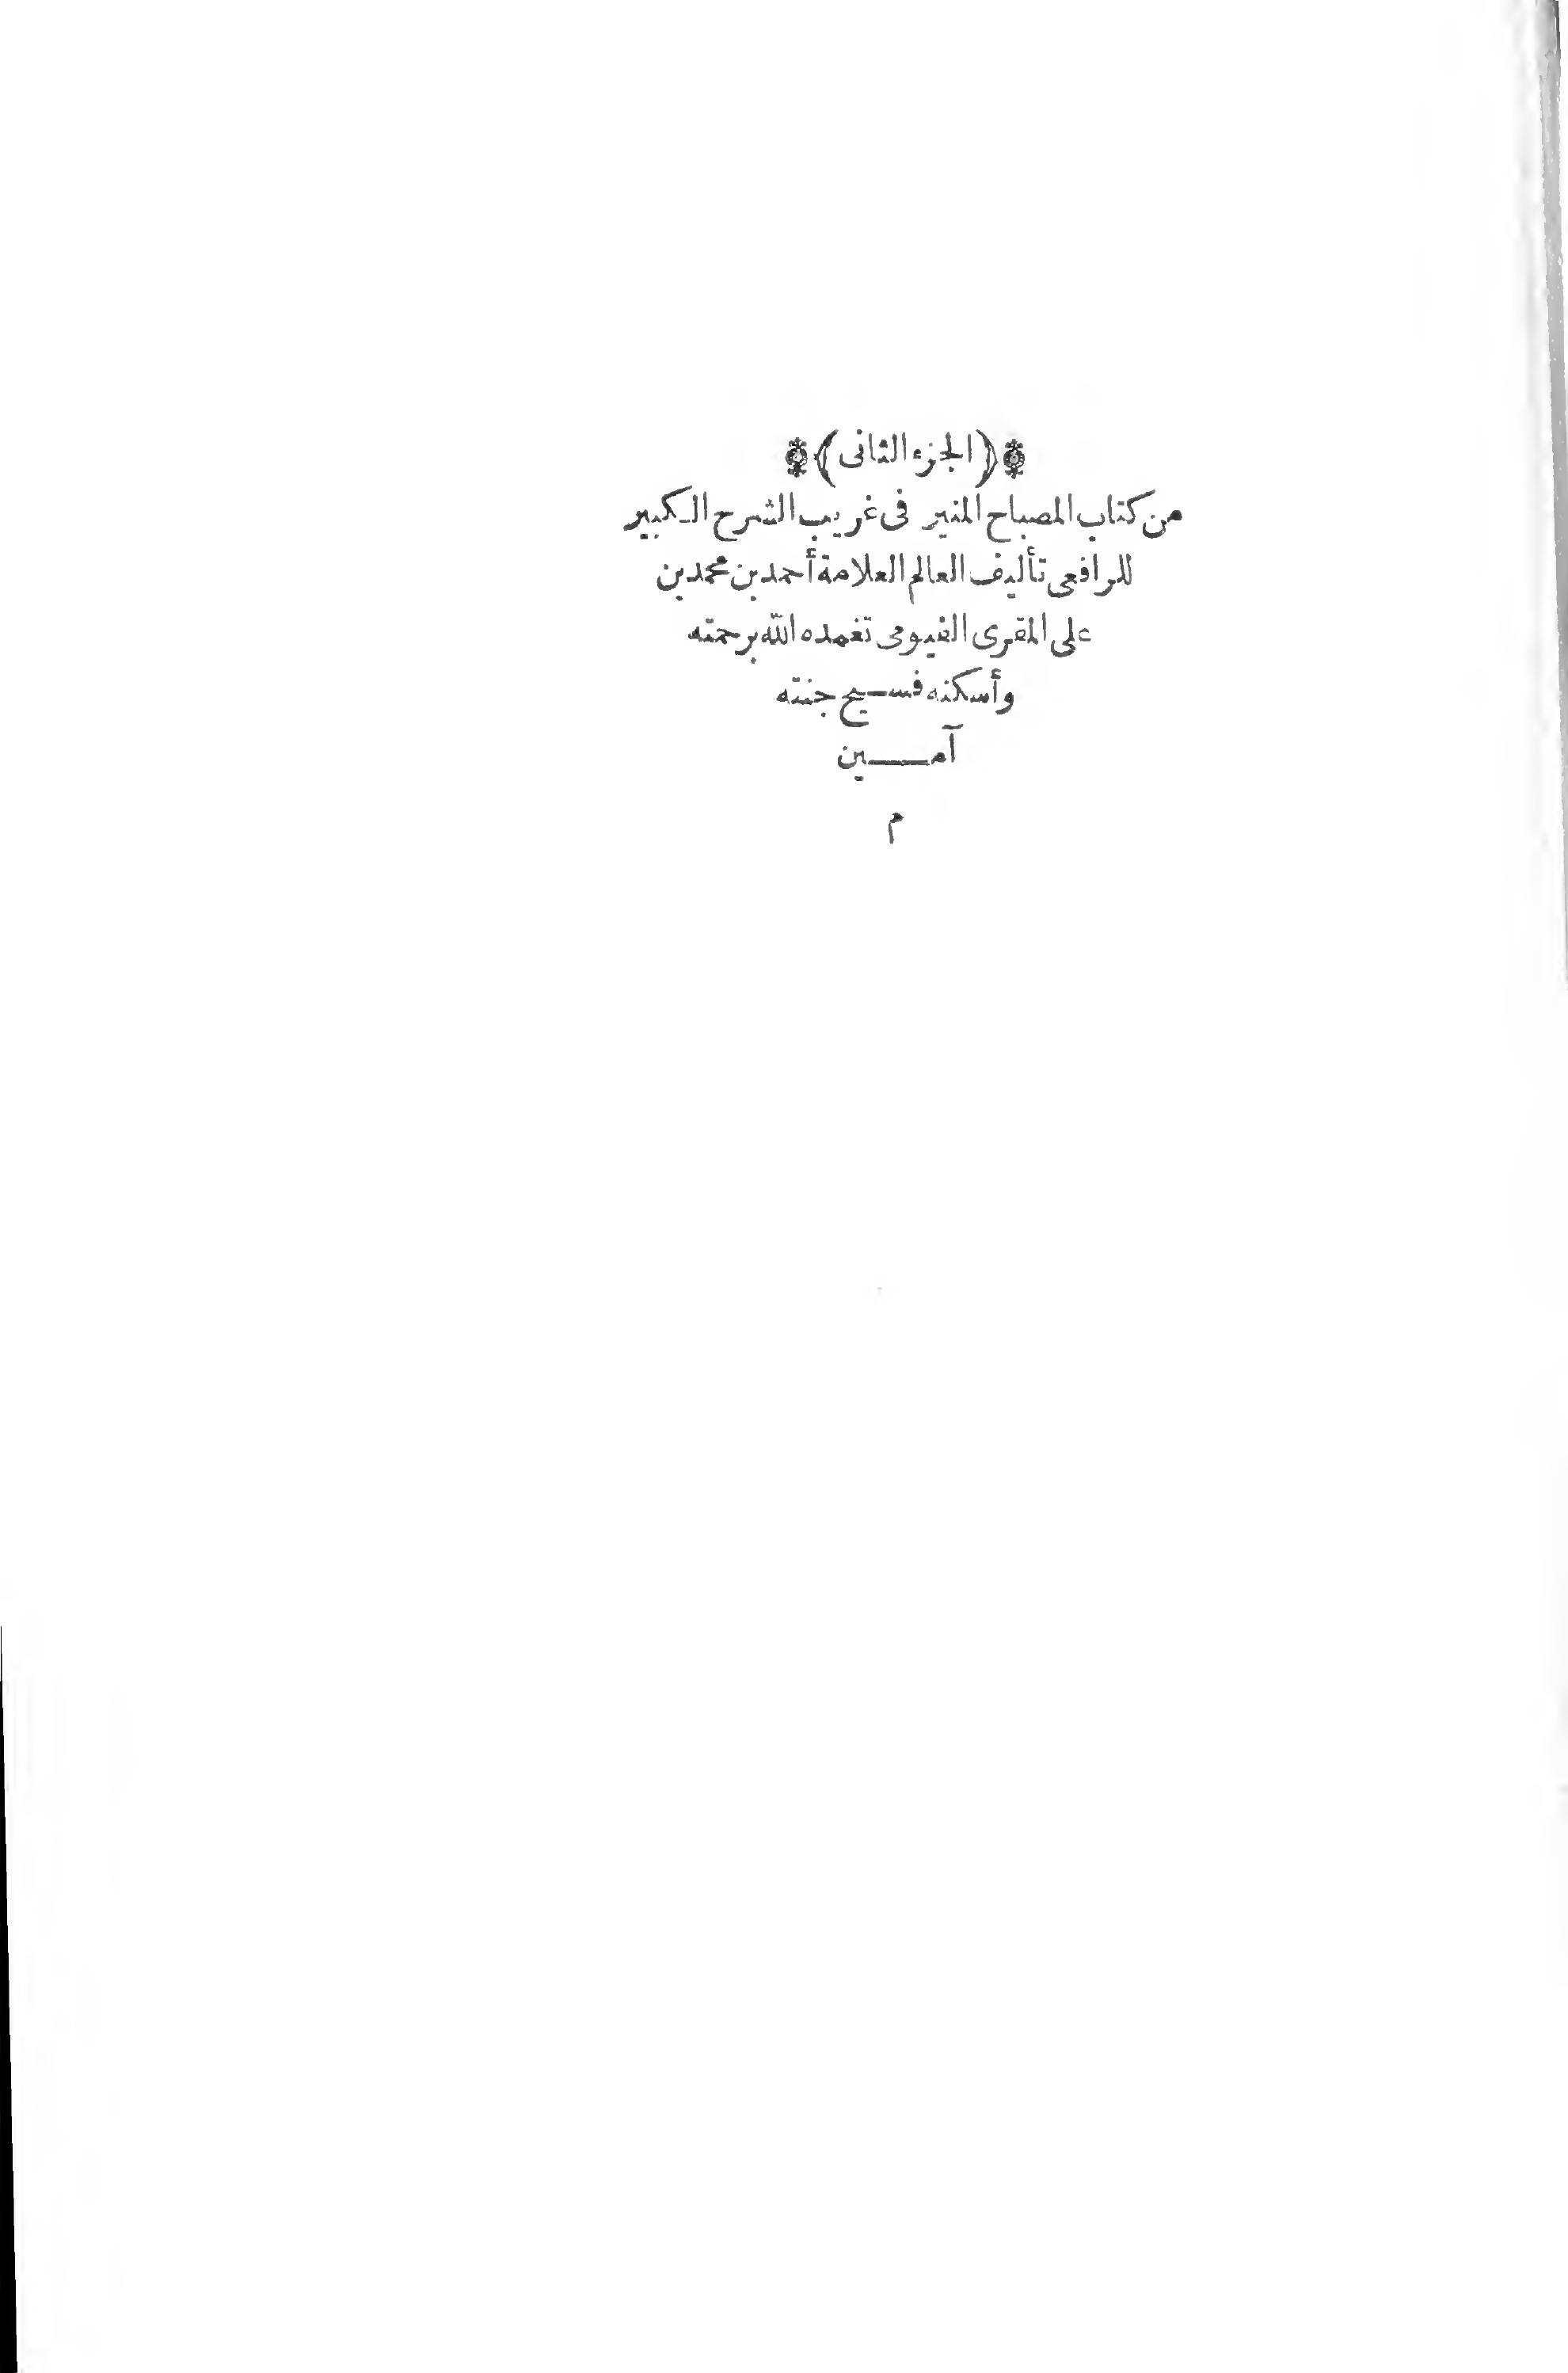 ﴿الجزء الثانى﴾
من كتاب المصباح المنير فى غريب الشرح الكبير
للرافعى تأليف العالم العلامة أحمد بن محمد بن
على المقرى الفيومى تغمده الله برحمته
وأسكنه فسيح جنته
آمين
م